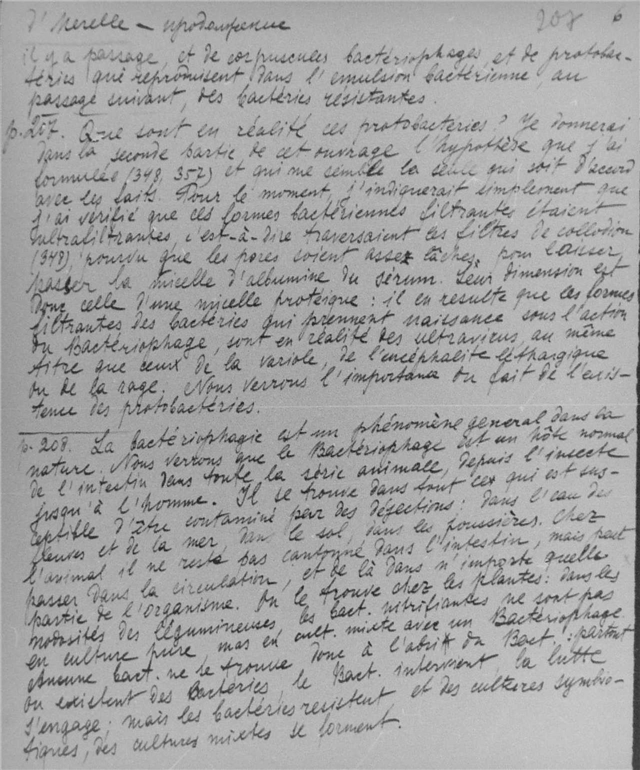 d'Herelle — продолжение 207 6
il y a passage, et de corpuscules bactériophages, et de protobac-
téries qui reproduisent dans l'emulsion bactérienne, au
passage suivant, des bactéries résistantes.
p. 207. Que sont en réalité ces protobactéries? Je donnerai
dans la seconde partie de cet ouvrage l'hypothèse que j'ai
formulée (348, 357) et qui me semble la seule qui soit d'accord
avec les faits. Pour le moment, j'indiquerait simplement que
j'ai vérifié que ces formes bactériennes filtrantes étaient
ultrafiltrantes, c'est-à-dire traversaient les filtres de collodion
(348), pourvu que les pores soient assez lâches pour laisser
passer la micelle d'albumine du sérum. Leur dimension est
donc celle d'une micelle protéique: il en resulte que les formes
filtrantes des bactéries qui prennent naissance sous l'action
du Bactériophage, sont en réalité des ultravirus, au même
titre que ceux de la variole, de l'encéphalite léthargique
ou de la rage. Nous verrons l'importance du fait de l'exis-
tence des protobactéries.
p. 208. La bactériophagie est un phénomène general dans la
nature. Nous verrons que le Bactériophage est un hôte normal
de l'intestin dans toute la série animale, depuis l'insecte
jusqu'à l'homme. Il se trouve dans tout ce qui est sus-
ceptible d'être contaminé par des déjections: dans l'eau des
fleuves et de la mer, dans le sol, dans les poussières. Chez
l'animal il ne reste pas cantonné dans l'intestin, mais peut
passer dans la circulation, et de là dans n'importe quelle
partie de l'organisme. On le trouve chez les plantes: dans les
nodosités des Légumineuses les bact. nitrifiantes ne sont pas
en culture pure, mas en cult. mixte avec un Bactériophage.
Aucune bact. ne se trouve donc à l'abri du Bact.: partout
où existent des bactéries, le Bact. intervient, la lutte
s'engage; mais les bactéries resistent et des cultures symbio-
tiques, des cultures mixtes se forment.